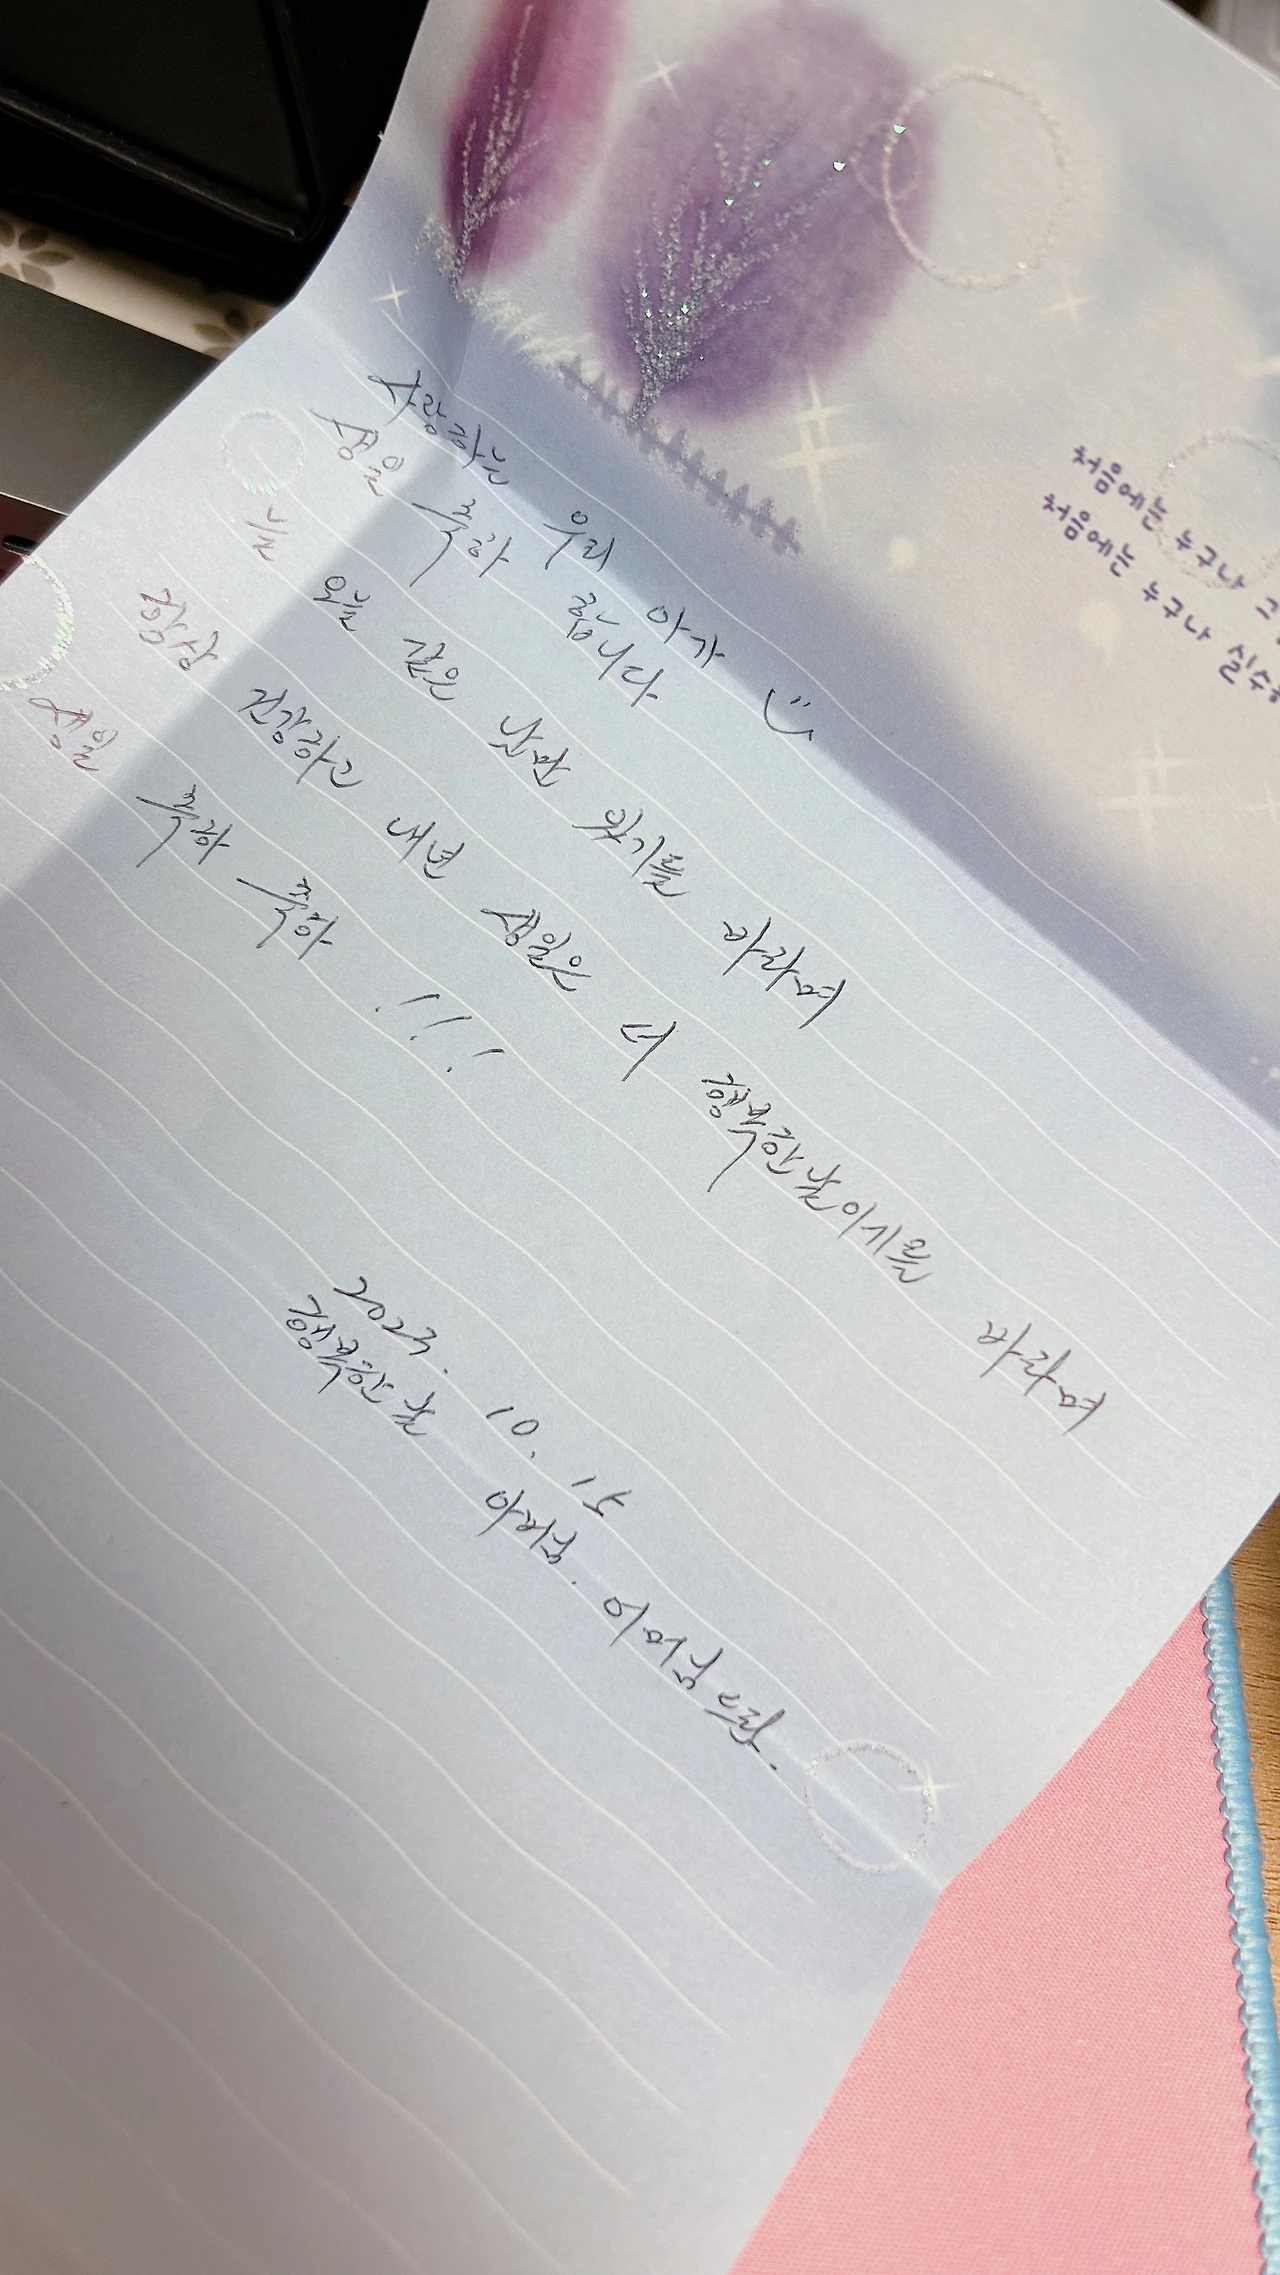 처음에는 누구나
처음에는 누구나 실수를
사랑하는 우리 아가
생일 축하 합니다
오늘 같은 날만 있기를 바라며
항상 건강하고 내년 생일은 더 행복한 날이기를 바라며
생일 축하 축하 !!!
2023. 10. 15
행복한 날